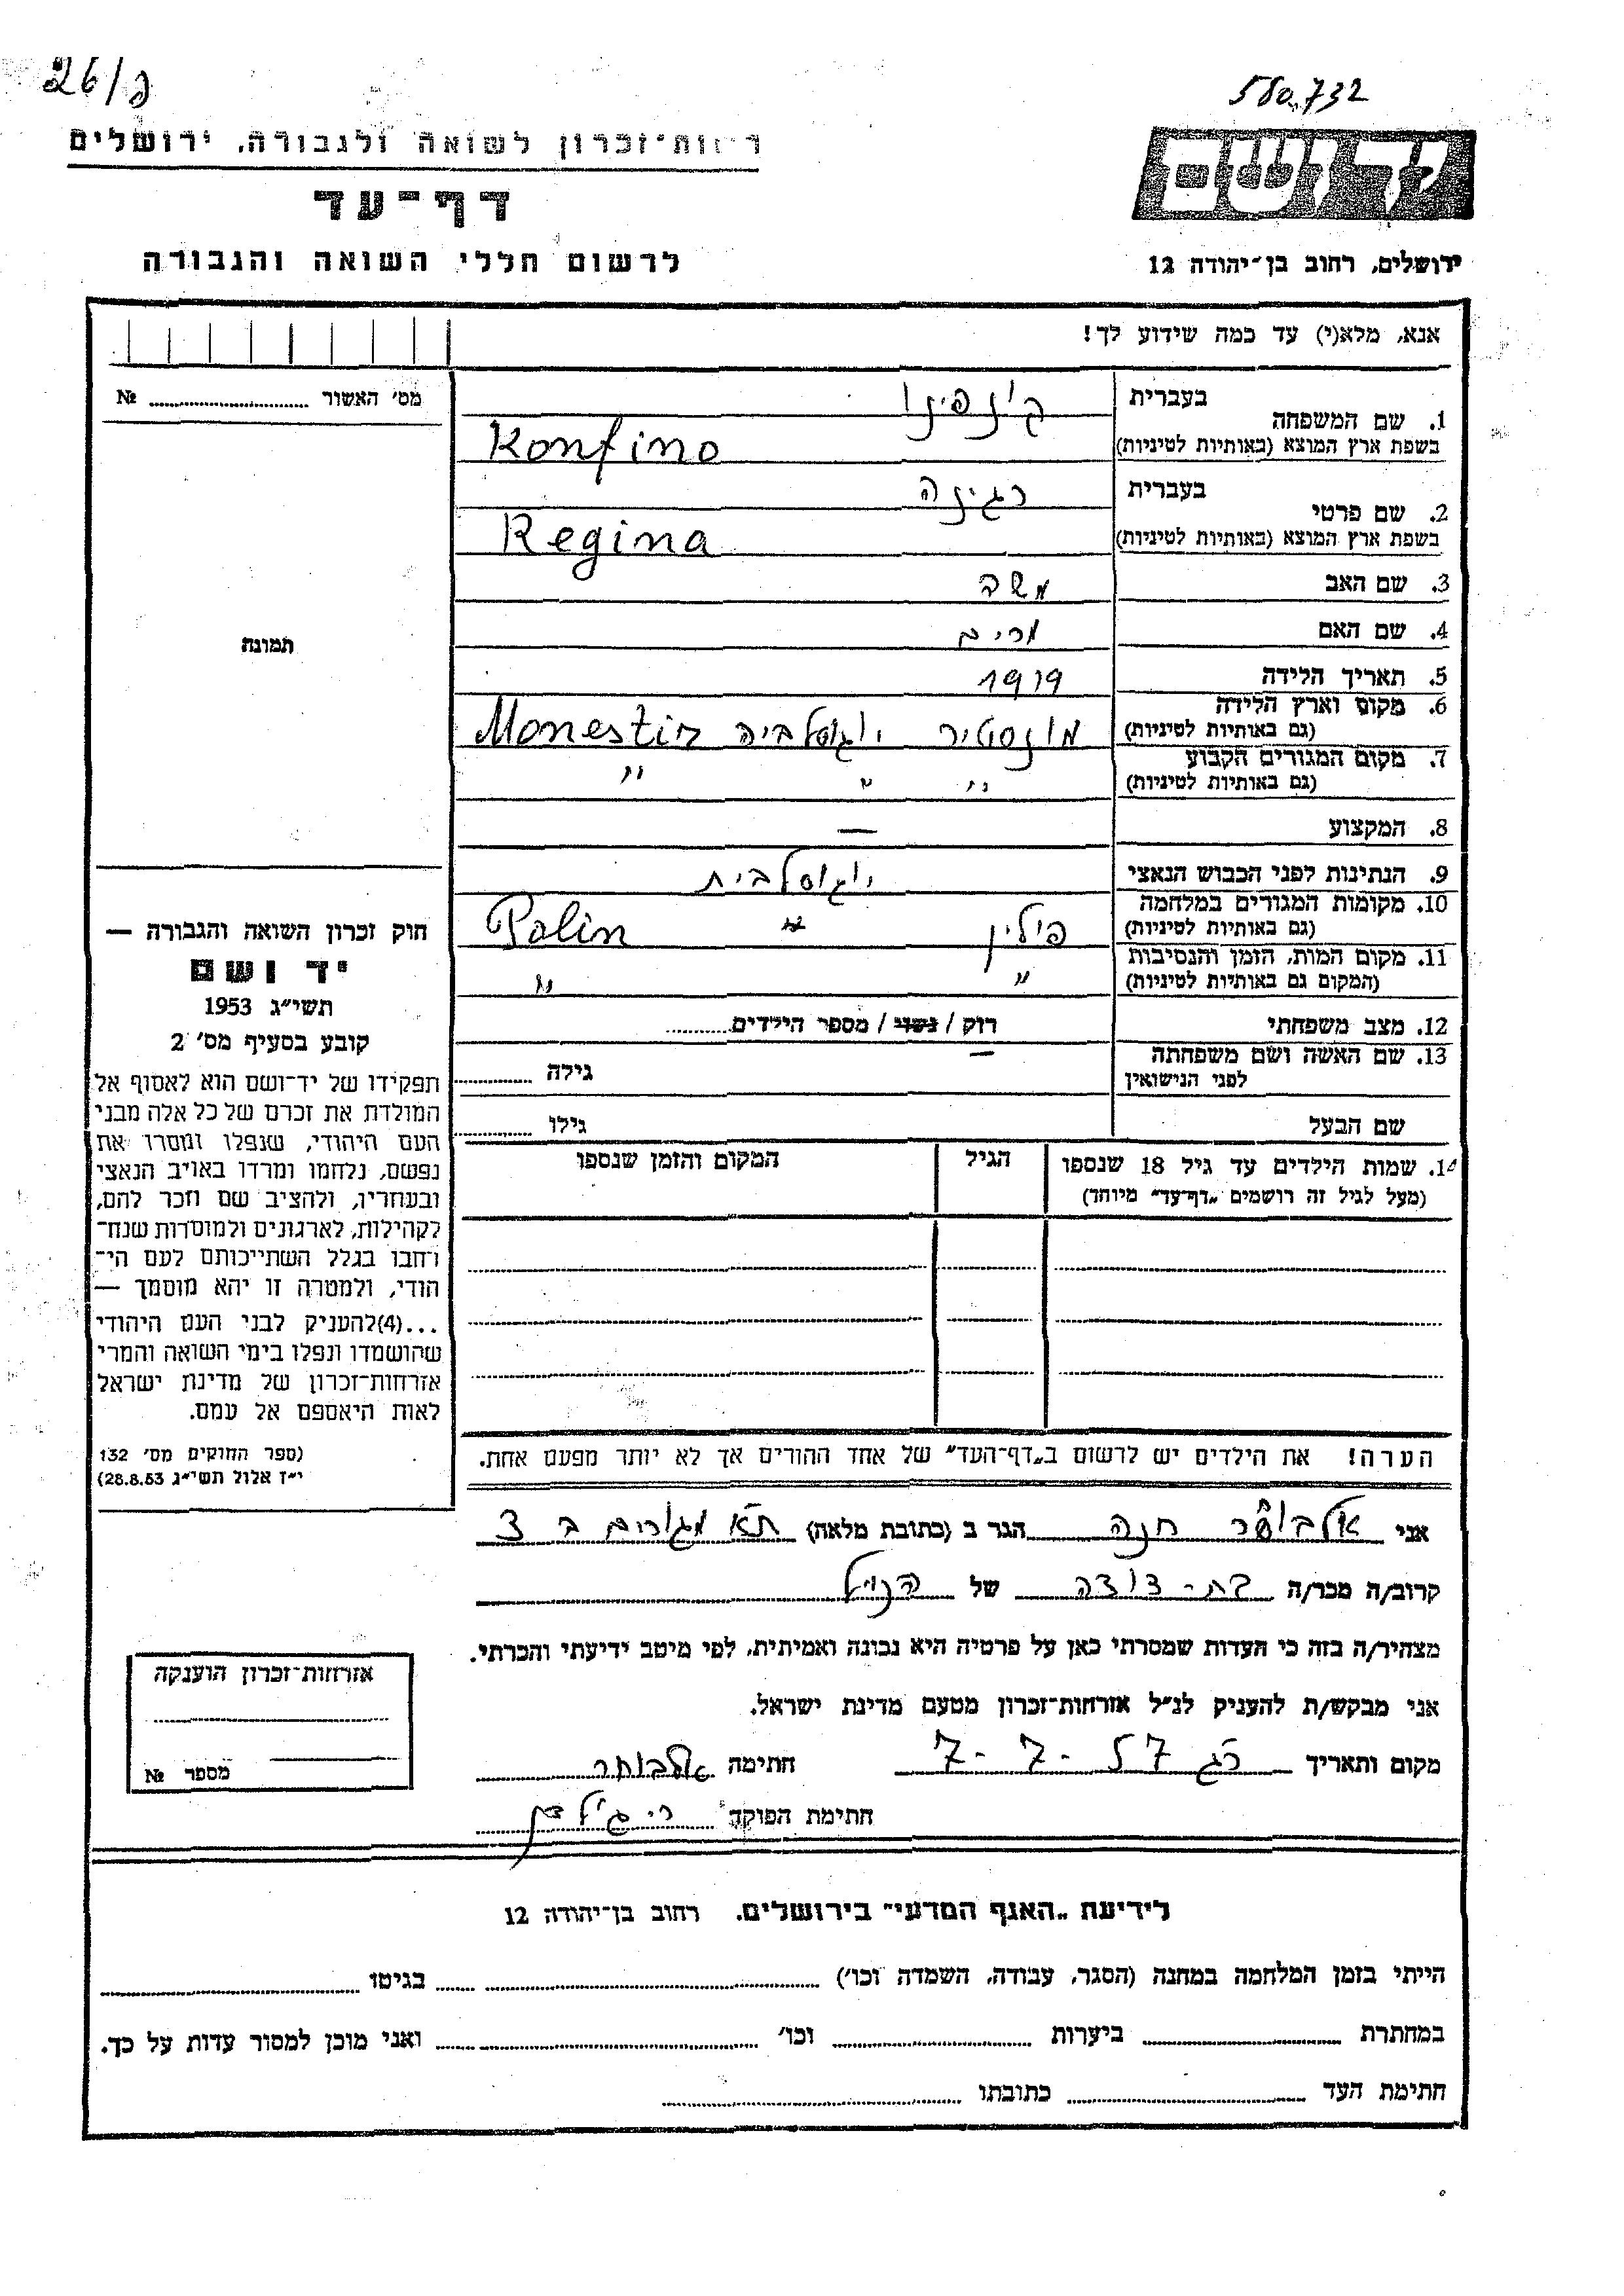 26/פ
560.732
רשות־זכרון לשואה ולגבורה, ירושלים
דף־עד
לרשום חללי השואה והגבורה
יד ושם
ירושלים, רחוב בן־יהודה 12
אנא, מלא(י) עד כמה שידוע לך!
מס׳ האשור № 
1. שם המשפחה בעברית קונפינו
בשפת ארץ המוצא (באותיות לטיניות) Konfino
2. שם פרטי בעברית רגינה
בשפת ארץ המוצא (באותיות לטיניות) Regina
3. שם האב משה
4. שם האם מרים
תמונה
5. תאריך הלידה 1919
6. מקום וארץ הלידה (גם באותיות לטיניות) מונסטיר יוגוסלביה Monestir
7. מקום המגורים הקבוע (גם באותיות לטיניות) " " "
8. המקצוע —
9. הנתינות לפני הכבוש הנאצי יוגוסלבית
10. מקומות המגורים במלחמה (גם באותיות לטיניות) פולין " Polin
11. מקום המות, הזמן והנסיבות (המקום גם באותיות לטיניות) " "
12. מצב משפחתי רוק / נשוי / מספר הילדים
13. שם האשה ושם משפחתה לפני הנישואין — גילה
שם הבעל גילו
14. שמות הילדים עד גיל 18 שנספו הגיל המקום והזמן שנספו
(מעל לגיל זה רושמים „דף־עד” מיוחד)
חוק זכרון השואה והגבורה —
יד ושם
תשי״ג 1953
קובע בסעיף מס׳ 2
תפקידו של יד־ושם הוא לאסוף אל
המולדת את זכרם של כל אלה מבני
העם היהודי, שנפלו ומסרו את
נפשם, נלחמו ומרדו באויב הנאצי
ובעוזריו, ולהציב שם וזכר להם,
לקהילות, לארגונים ולמוסדות שנח־
רחבו בגלל השתייכותם לעם הי־
הודי, ולמטרה זו יהא מוסמך —
...(4)להעניק לבני העם היהודי
שהושמדו ונפלו בימי השואה והמרי
אזרחות־זכרון של מדינת ישראל
לאות היאספם אל עמם.
(ספר החוקים מס׳ 132
י״ז אלול תשי״ג 28.8.53)
הערה! את הילדים יש לרשום ב„דף־העד” של אחד ההורים אך לא יותר מפעם אחת.
אני אלבוחר חנה הגר ב (כתובת מלאה) ת״א מגורים ב 3
קרוב/ה מכר/ה בת-דודה של הנ״ל
מצהיר/ה בזה כי העדות שמסרתי כאן על פרטיה היא נכונה ואמיתית, לפי מיטב ידיעתי והכרתי.
אני מבקש/ת להעניק לנ״ל אזרחות־זכרון מטעם מדינת ישראל.
מקום ותאריך 7-7-57 חתימה אלבוחר
חתימת הפוקד
אזרחות־זכרון הוענקה
מספר №
לידיעת „האגף המדעי” בירושלים, רחוב בן־יהודה 12
הייתי בזמן המלחמה במחנה (הסגר, עבודה, השמדה וכו׳) בגיטו
במחתרת ביערות וכו׳ ואני מוכן למסור עדות על כך.
חתימת העד כתובתו